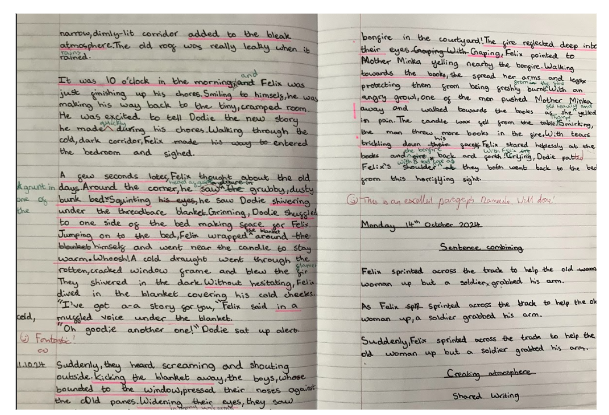 narrow, dimly-lit corridor added to the bleak
atmosphere. The old roof was really leaky when it
rained.
It was 10 o'clock in the morning, and Felix was
just finishing up his chores. Smiling to himself, he was
making his way back to the tiny, cramped room.
He was excited to tell Dodie the new story
he made during his chores. Walking through the
cold, dark corridor, Felix made his way to entered
the bedroom and sighed.
A few seconds later, Felix thought about the old
days. Around the corner, he saw the grubby, dusty
bunk bed. Squinting his eyes, he saw Dodie shivering
under the threadbare blanket. Groning, Dodie shuggled
to one side of the bed making space for Felix
Jumping on to the bed, Felix wrapped around the
blanket himself and went near the candle to stay
warm. Whoosh! A cold draught went through the
rotten, cracked window frame and blew the fir
They shivered in the dark. Without hesitating, Felix
dived in the blanket covering his cold cheeks.
"I've got a story for you," Felix said in a
cold, muffled voice under the blanket.
"Oh goodie another one!" Dodie sat up alert.
Fantastic!
1.10.24
Suddenly, they heard screaming and shouting
outside. Kicking the blanket away, the boys, whose
bounded to the window, pressed their noses against
the cold panes. Widening their eyes, they saw
bonfire in the courtyard! The fire reflected deep into
their eyes. Gaping With Gaping, Felix pointed to
Mother Minka yelling nearby the bonfire. Walking
towards the books, she spread her arms
protecting them from being freshly burnt. With an
angry growl, one of the men pushed Mother Minka
away and walked towards the books as she yelled
in pain. The candle wax fell from the table. Smirking,
the man threw more books in the fire. With tears
brickling down their faces, Felix stared helplessly at the
books and fire back and forth. Griefing, Dodie patted
Felix's shoulder as they both went back to the bed
from this horrifying sight.
This is an excellent paragraph Well done!
Monday 14th October 2024
Sentence combining
Felix sprinted across the track to help the old woman
up but a soldier, grabbed his arm.
As Felix sprinted across the track to help the old
woman up, a soldier grabbed his arm.
Suddenly, Felix sprinted across the track to help the
old woman up but a soldier grabbed his arm.
Creating atmosphere
Shared Writing